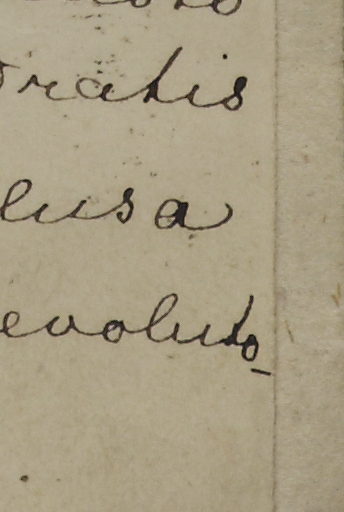 ratis
lusa
evoluto